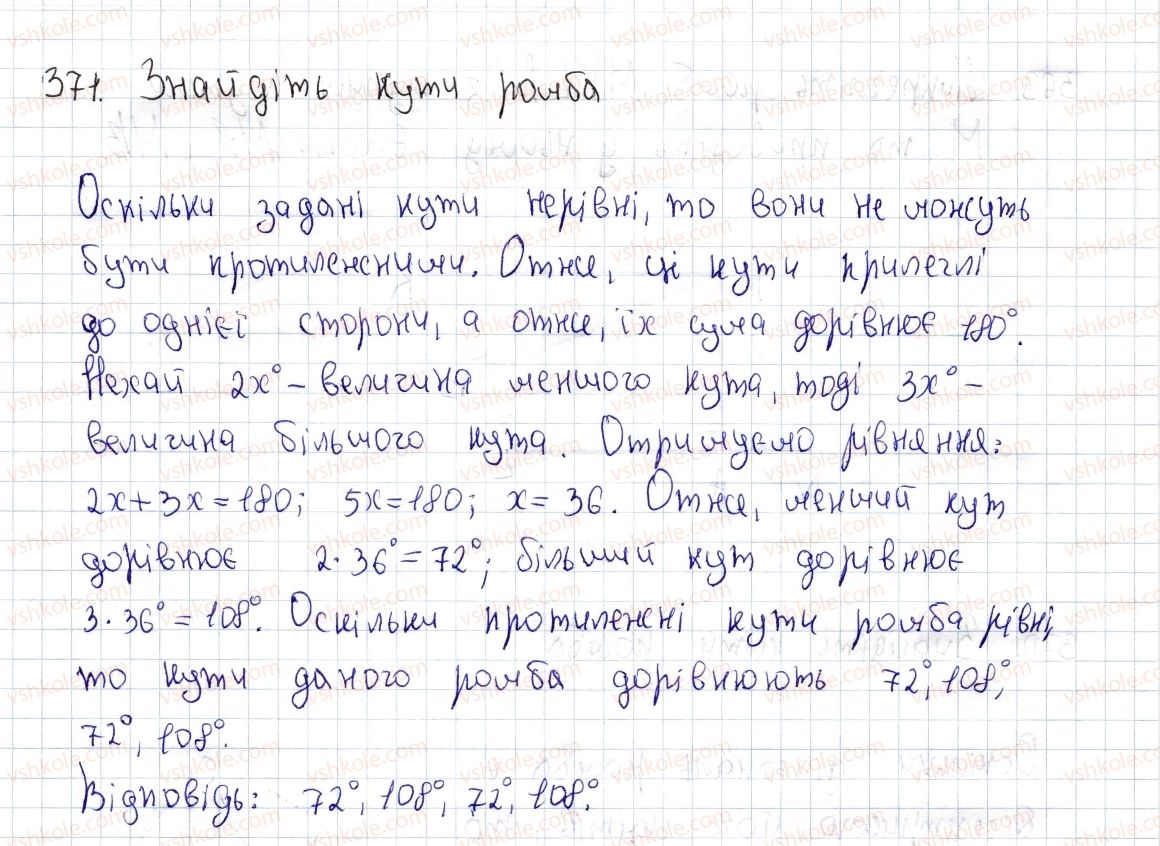 371. Знайдіть кути ромба
Оскільки задані кути нерівні, то вони не можуть
бути протилежними. Отже, ці кути прилеглі
до однієї сторони, а отже, їх сума дорівнює 180°.
Нехай 2x° – величина меншого кута, тоді 3x° –
величина більшого кута. Отримуємо рівняння:
2x+3x=180; 5x=180; x=36. Отже, менший кут
дорівнює 2·36°=72°; більший кут дорівнює
3·36°=108°. Оскільки протилежні кути ромба рівні,
то кути даного ромба дорівнюють 72°, 108°,
72°, 108°.
Відповідь: 72°, 108°, 72°, 108°.